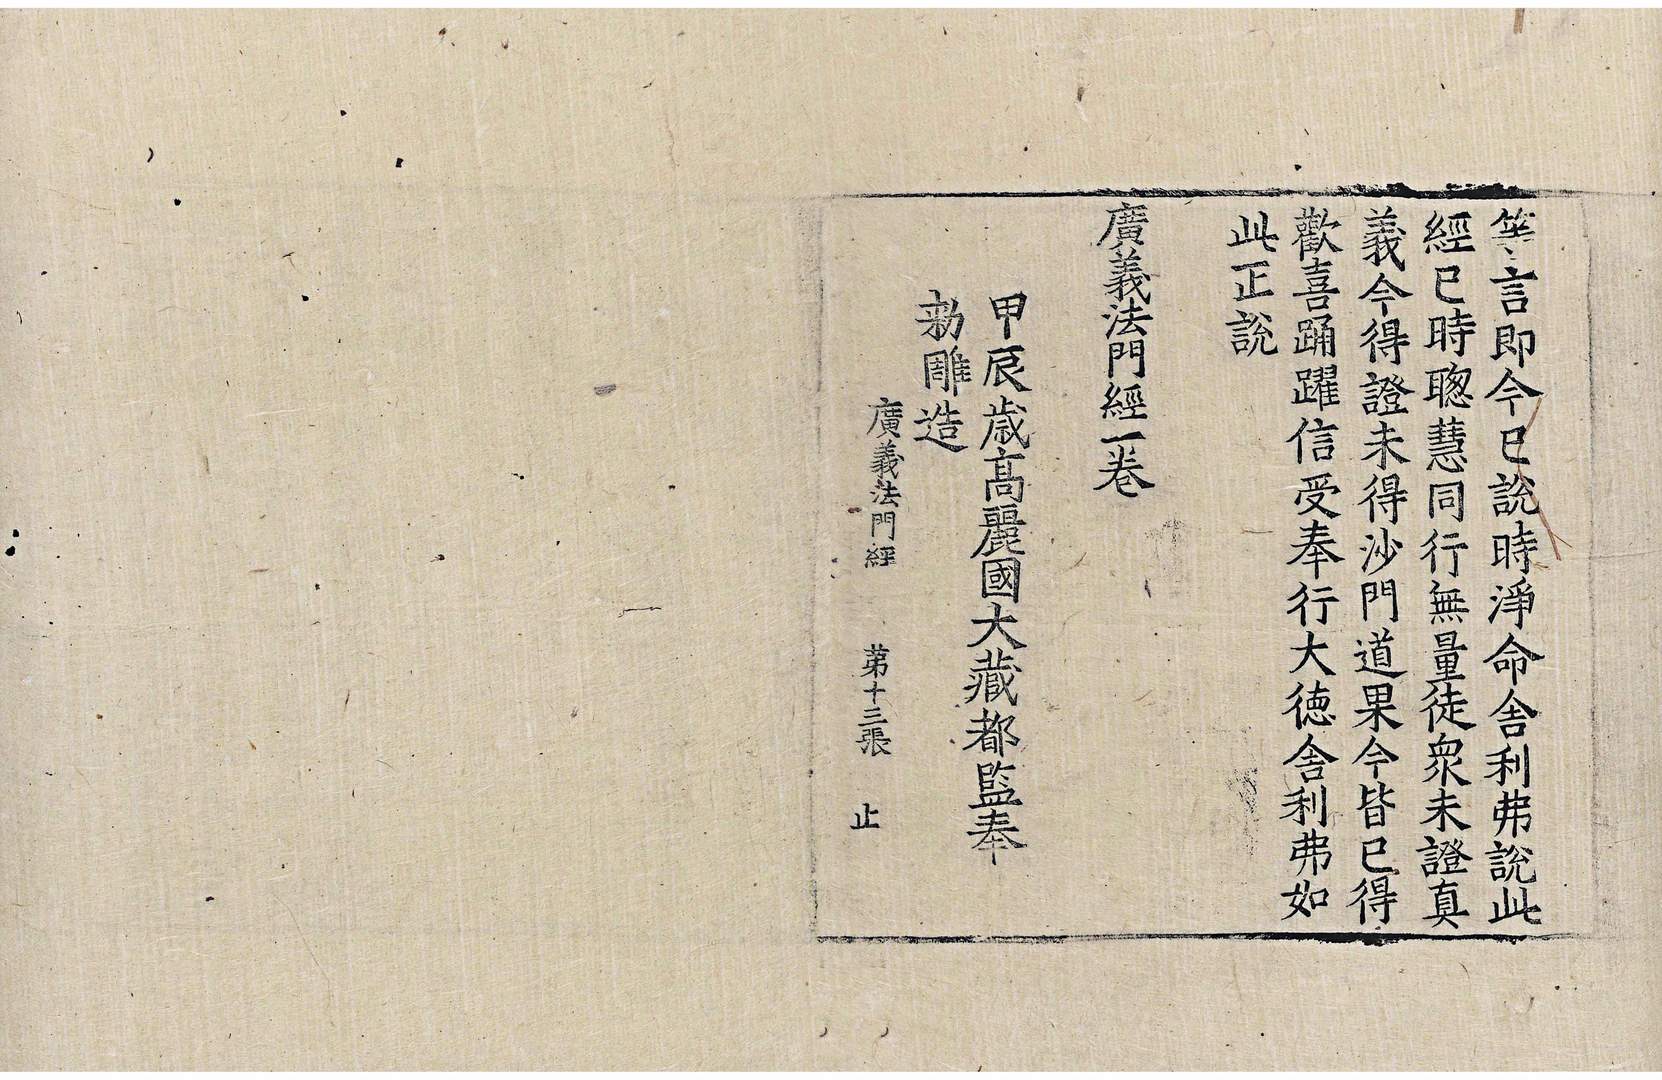 等言即今已說時淨命舎利弗說此
經已時聰慧同行無量徒衆未證真
義今得證未得沙門道果今皆已得
歡喜踊躍信受奉行大徳舎利弗如
此正說
廣義法門經一卷
甲辰歳高麗國大藏都監奉
勑雕造
廣義法門經 第十三張 止